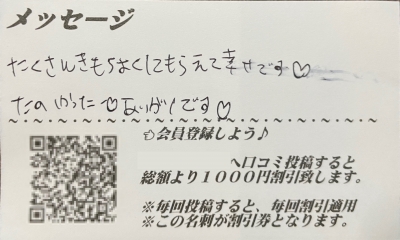 メッセージ
たくさんきもちよくしてもらえて幸せです♡
たのしかった♡ありがとです♡
会員登録しよう♪
へ口コミ投稿すると
総額より1000円割引致します。
※毎回投稿すると、毎回割引適用
※この名刺が割引券となります。